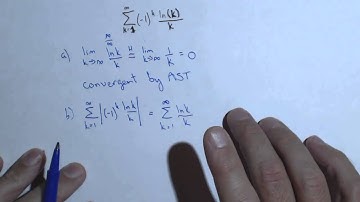 ∞
∑ (-1)^k ln(k)/k
k=1
a) lim k→∞ ln k/k ∞/∞ H= lim k→∞ 1/k = 0
convergent by AST
b) ∑_{k=1}^{∞} |(-1)^k ln k/k| = ∑_{k=1}^{∞} ln k/k